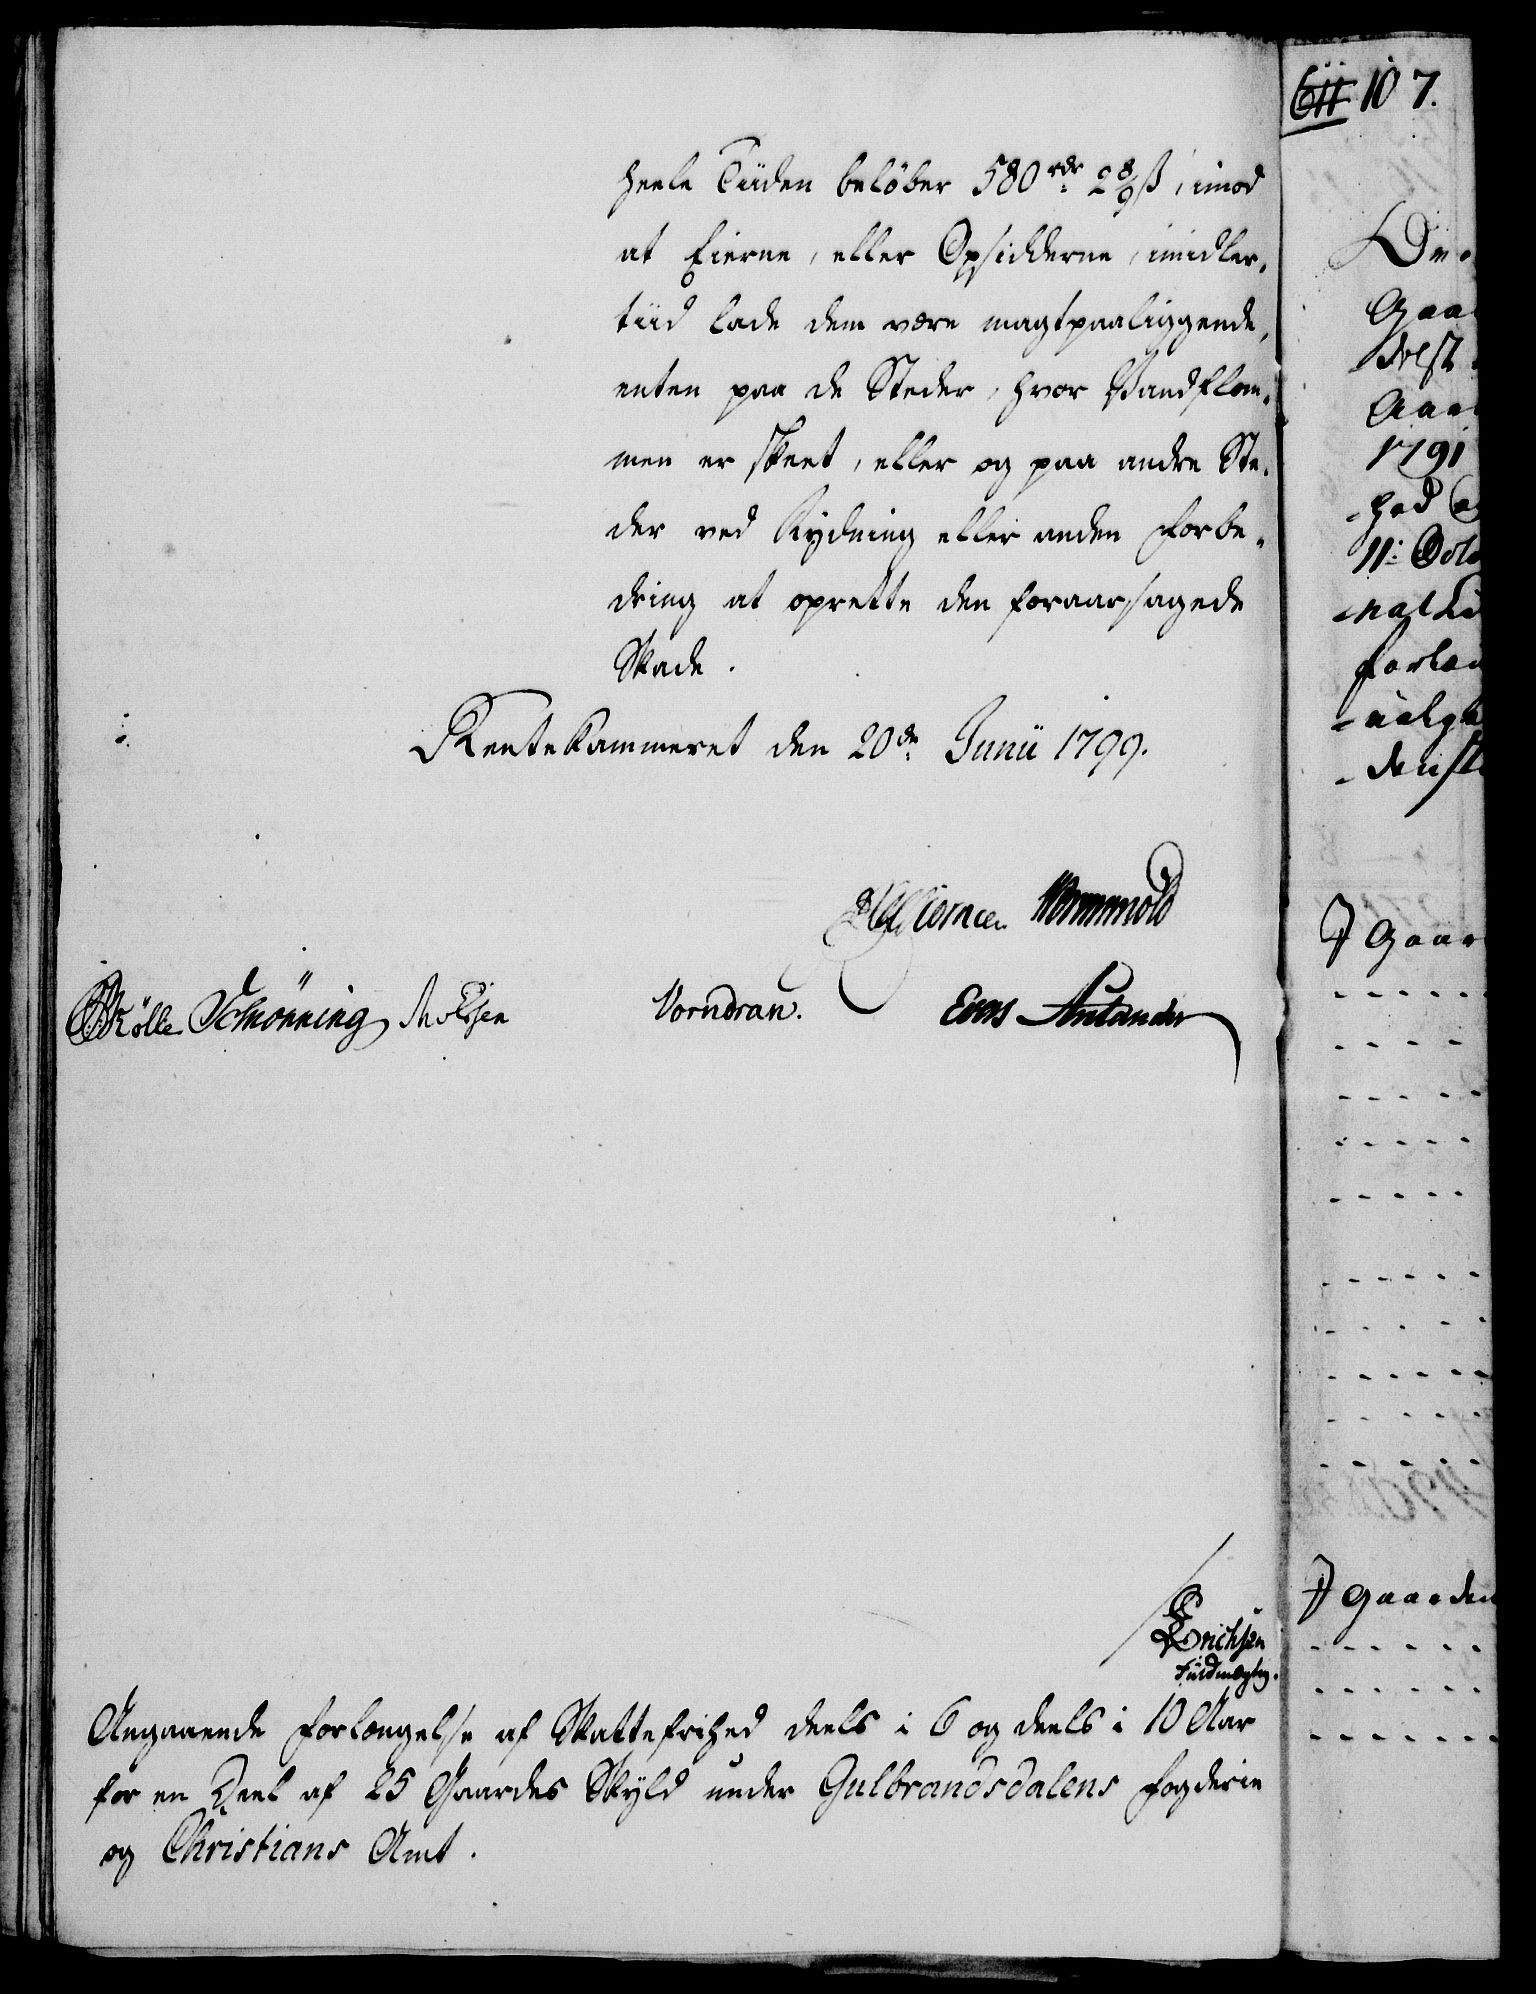 heele Tiiden beløber 580 rdr 2 8/9 ß, imod
at Eierne, eller Opsidderne, imidler-
tiid lade dem være magtpaaliggende,
enten paa de Steder, hvor Vandflom-
men er skeet, eller og paa andre Ste-
der ved Rydning eller anden Forbe-
dring at oprette den foraarsagede
Skade.
Rentekammeret den 20de Junii 1799.
Wormskiold
Kølle Schønning Vorndran. Evers Aulander
Erichsen
Fuldmægtig.
Angaaende Forlængelse af Skattefrihed deels i 6 og deels i 10 Aar
for en Deel af 25 Gaardes Skyld under Gulbrandsdalens Fogderie
og Christians Amt.
107.
Gaa
1791
hed
11
forlæn
Gaar
Gaarden